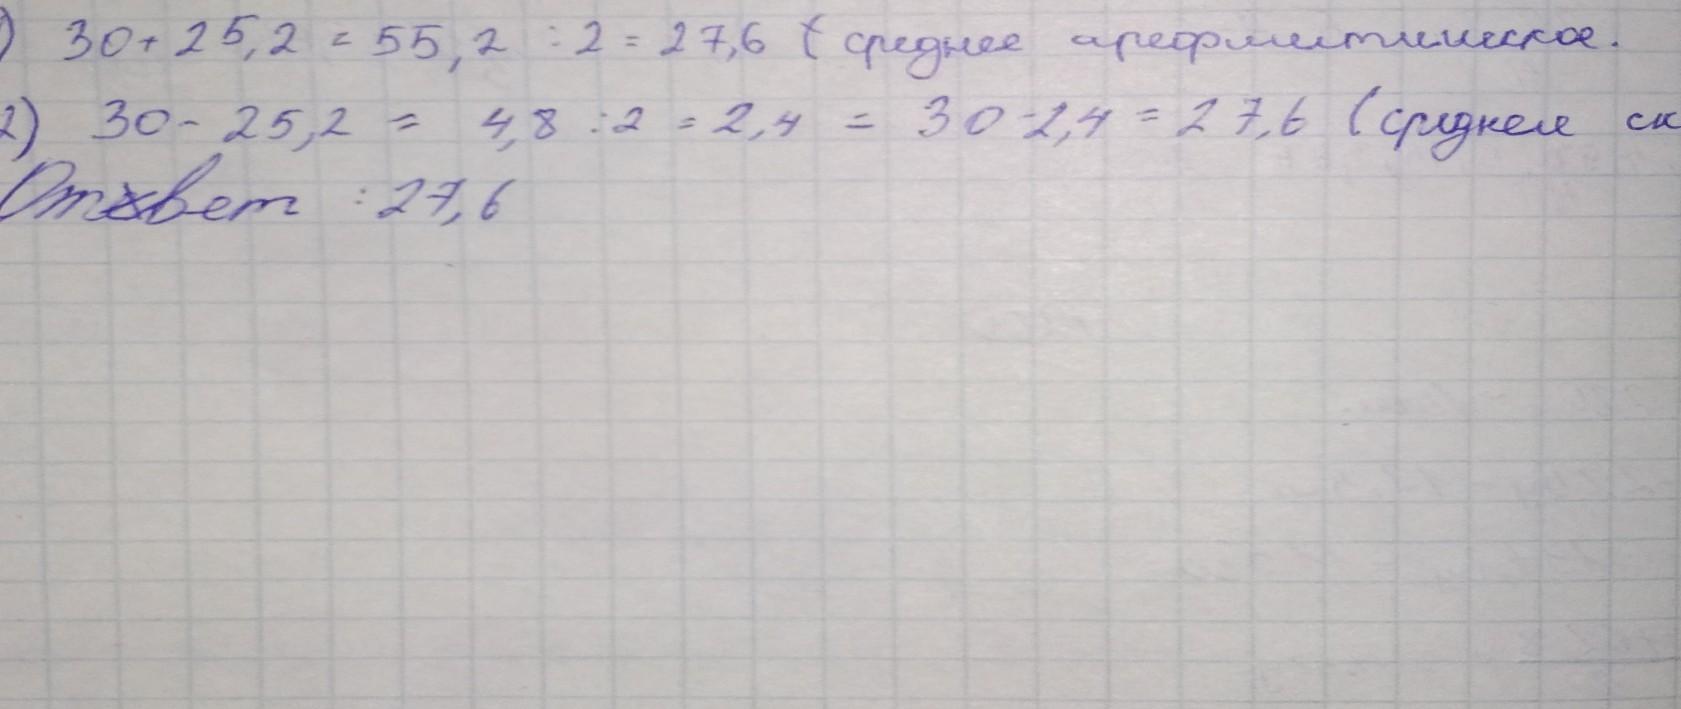 ) 30 + 25,2 = 55,2 : 2 = 27,6 ( среднее арефмитическое.
2) 30 - 25,2 = 4,8 : 2 = 2,4 = 30 - 2,4 = 27,6 (среднее ск
Ответ : 27,6